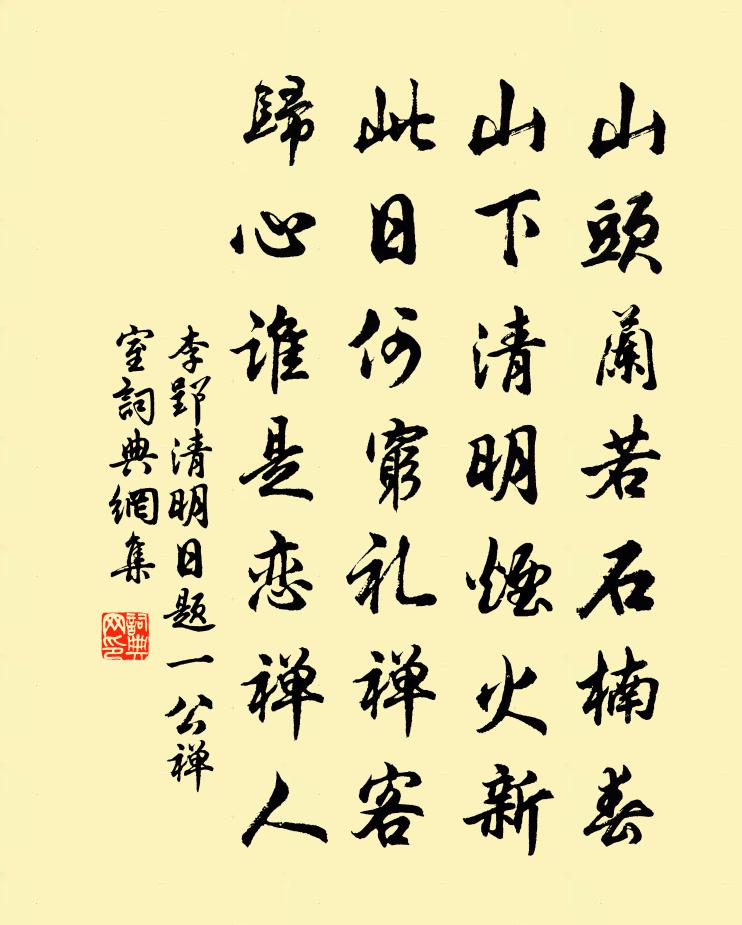 山頭蘭若石楠春
山下清明煙火新
此日何窮礼禅客
歸心誰是恋禅人
李郢清明日題一公禅
室詞典網集
詞典网印